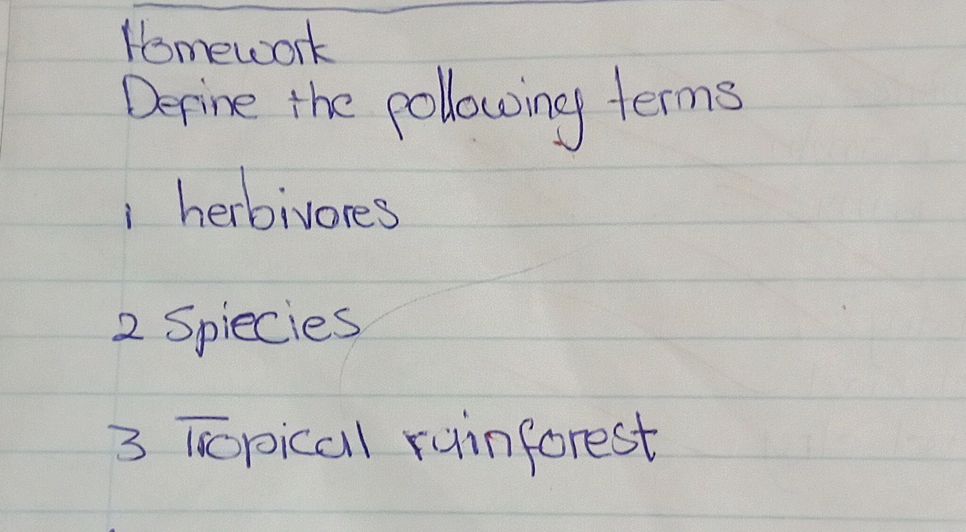 Homework
Define the following terms
1 herbivores
2 Spiecies
3 Tropical rainforest